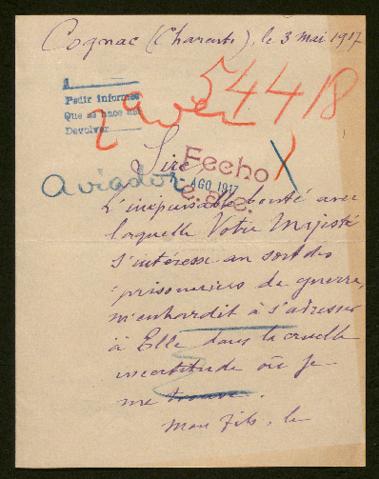 Cognac (Charente), le 3 mai 1917
54418
Pedir informes
Que se hace
Devolver
Sire
Fecho
AGO 1917
aviador
L'inépuisable bonté avec
laquelle Votre Majesté
s'intéresse au sort des
prisonniers de guerre,
m'enhardit à s'adresser
à Elle dans la cruelle
incertitude où je
me trouve.
Mon fils, le